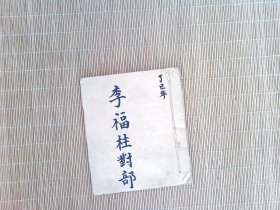 丁巳年
李福柱對部